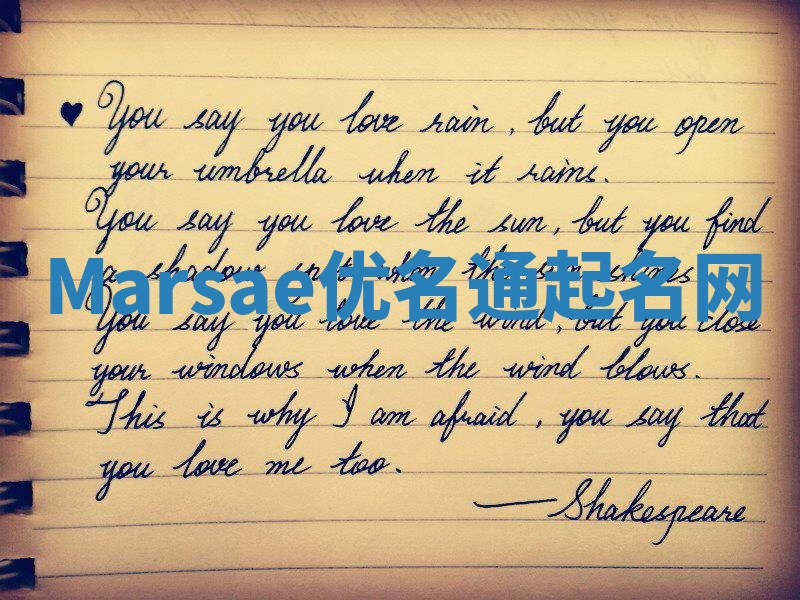 ♥ You say you love rain, but you open
your umbrella when it rains.
You say you love the sun, but you find
a shadow spot when the sun shines
Marsae优名通起名网
You say you love the wind, but you close
your windows when the wind blows.
This is why I am afraid, you say that
you love me too.
— Shakespeare